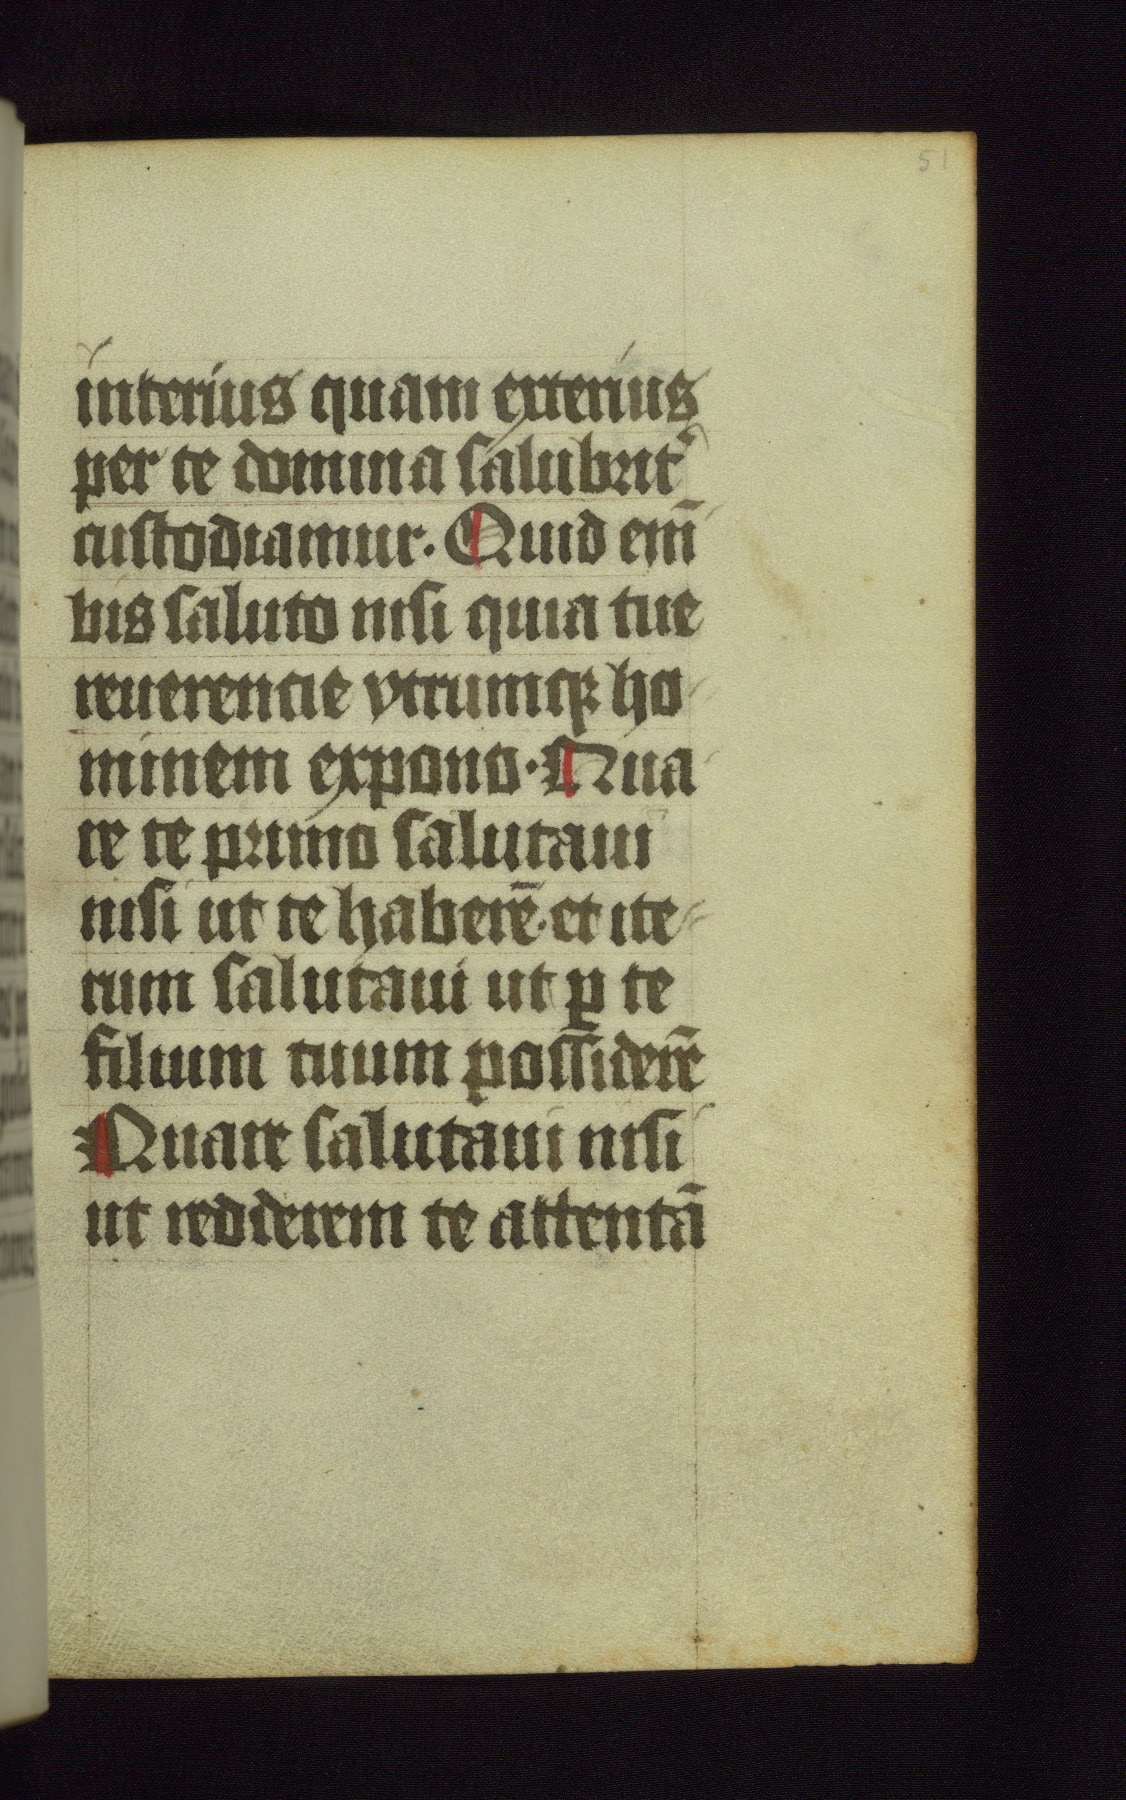 51
interius quam exterius
per te domina salubrit᷑
custodiamur. Quid em̄
bis saluto nisi quia tue
reuerencie vtrumqꝫ ho
minem expono. Qua
re te primo salutaui
nisi ut te haberē. et ite
rum salutaui ut ꝑ te
filium tuum possiderē
Quare salutaui nisi
ut redderem te attentā